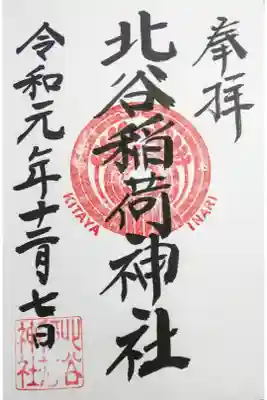 奉拝
北谷稲荷神社
KITAYA INARI
令和元年十二月七日